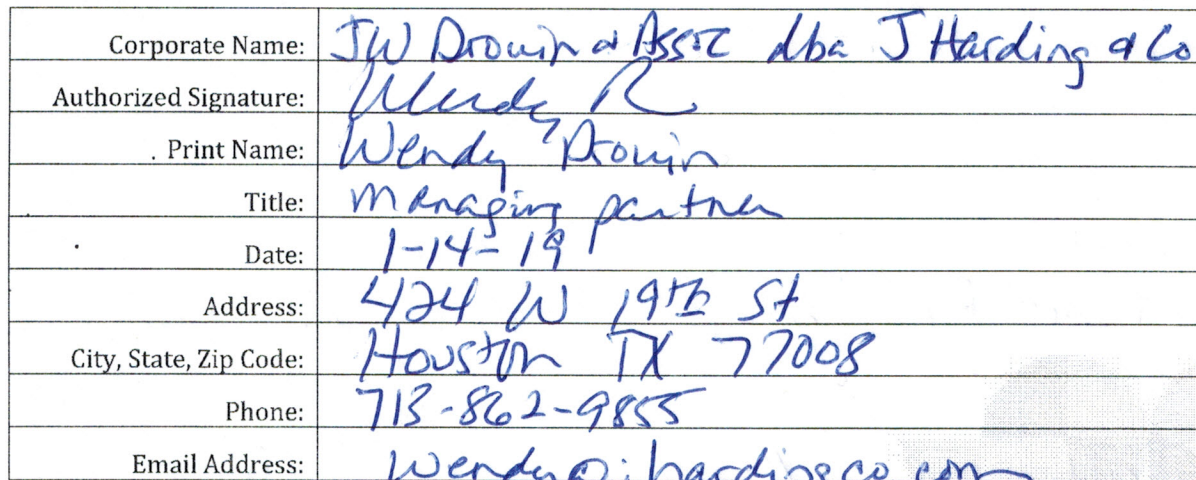 Corporate Name: JW Drouin & Assoc dba J Harding & Co
Authorized Signature: Wendy R
Print Name: Wendy Drouin
Title: Managing partner
Date: 1-14-19
Address: 424 W 19th St
City, State, Zip Code: Houston TX 77008
Phone: 713-862-9855
Email Address: wendy@jhardingco.com